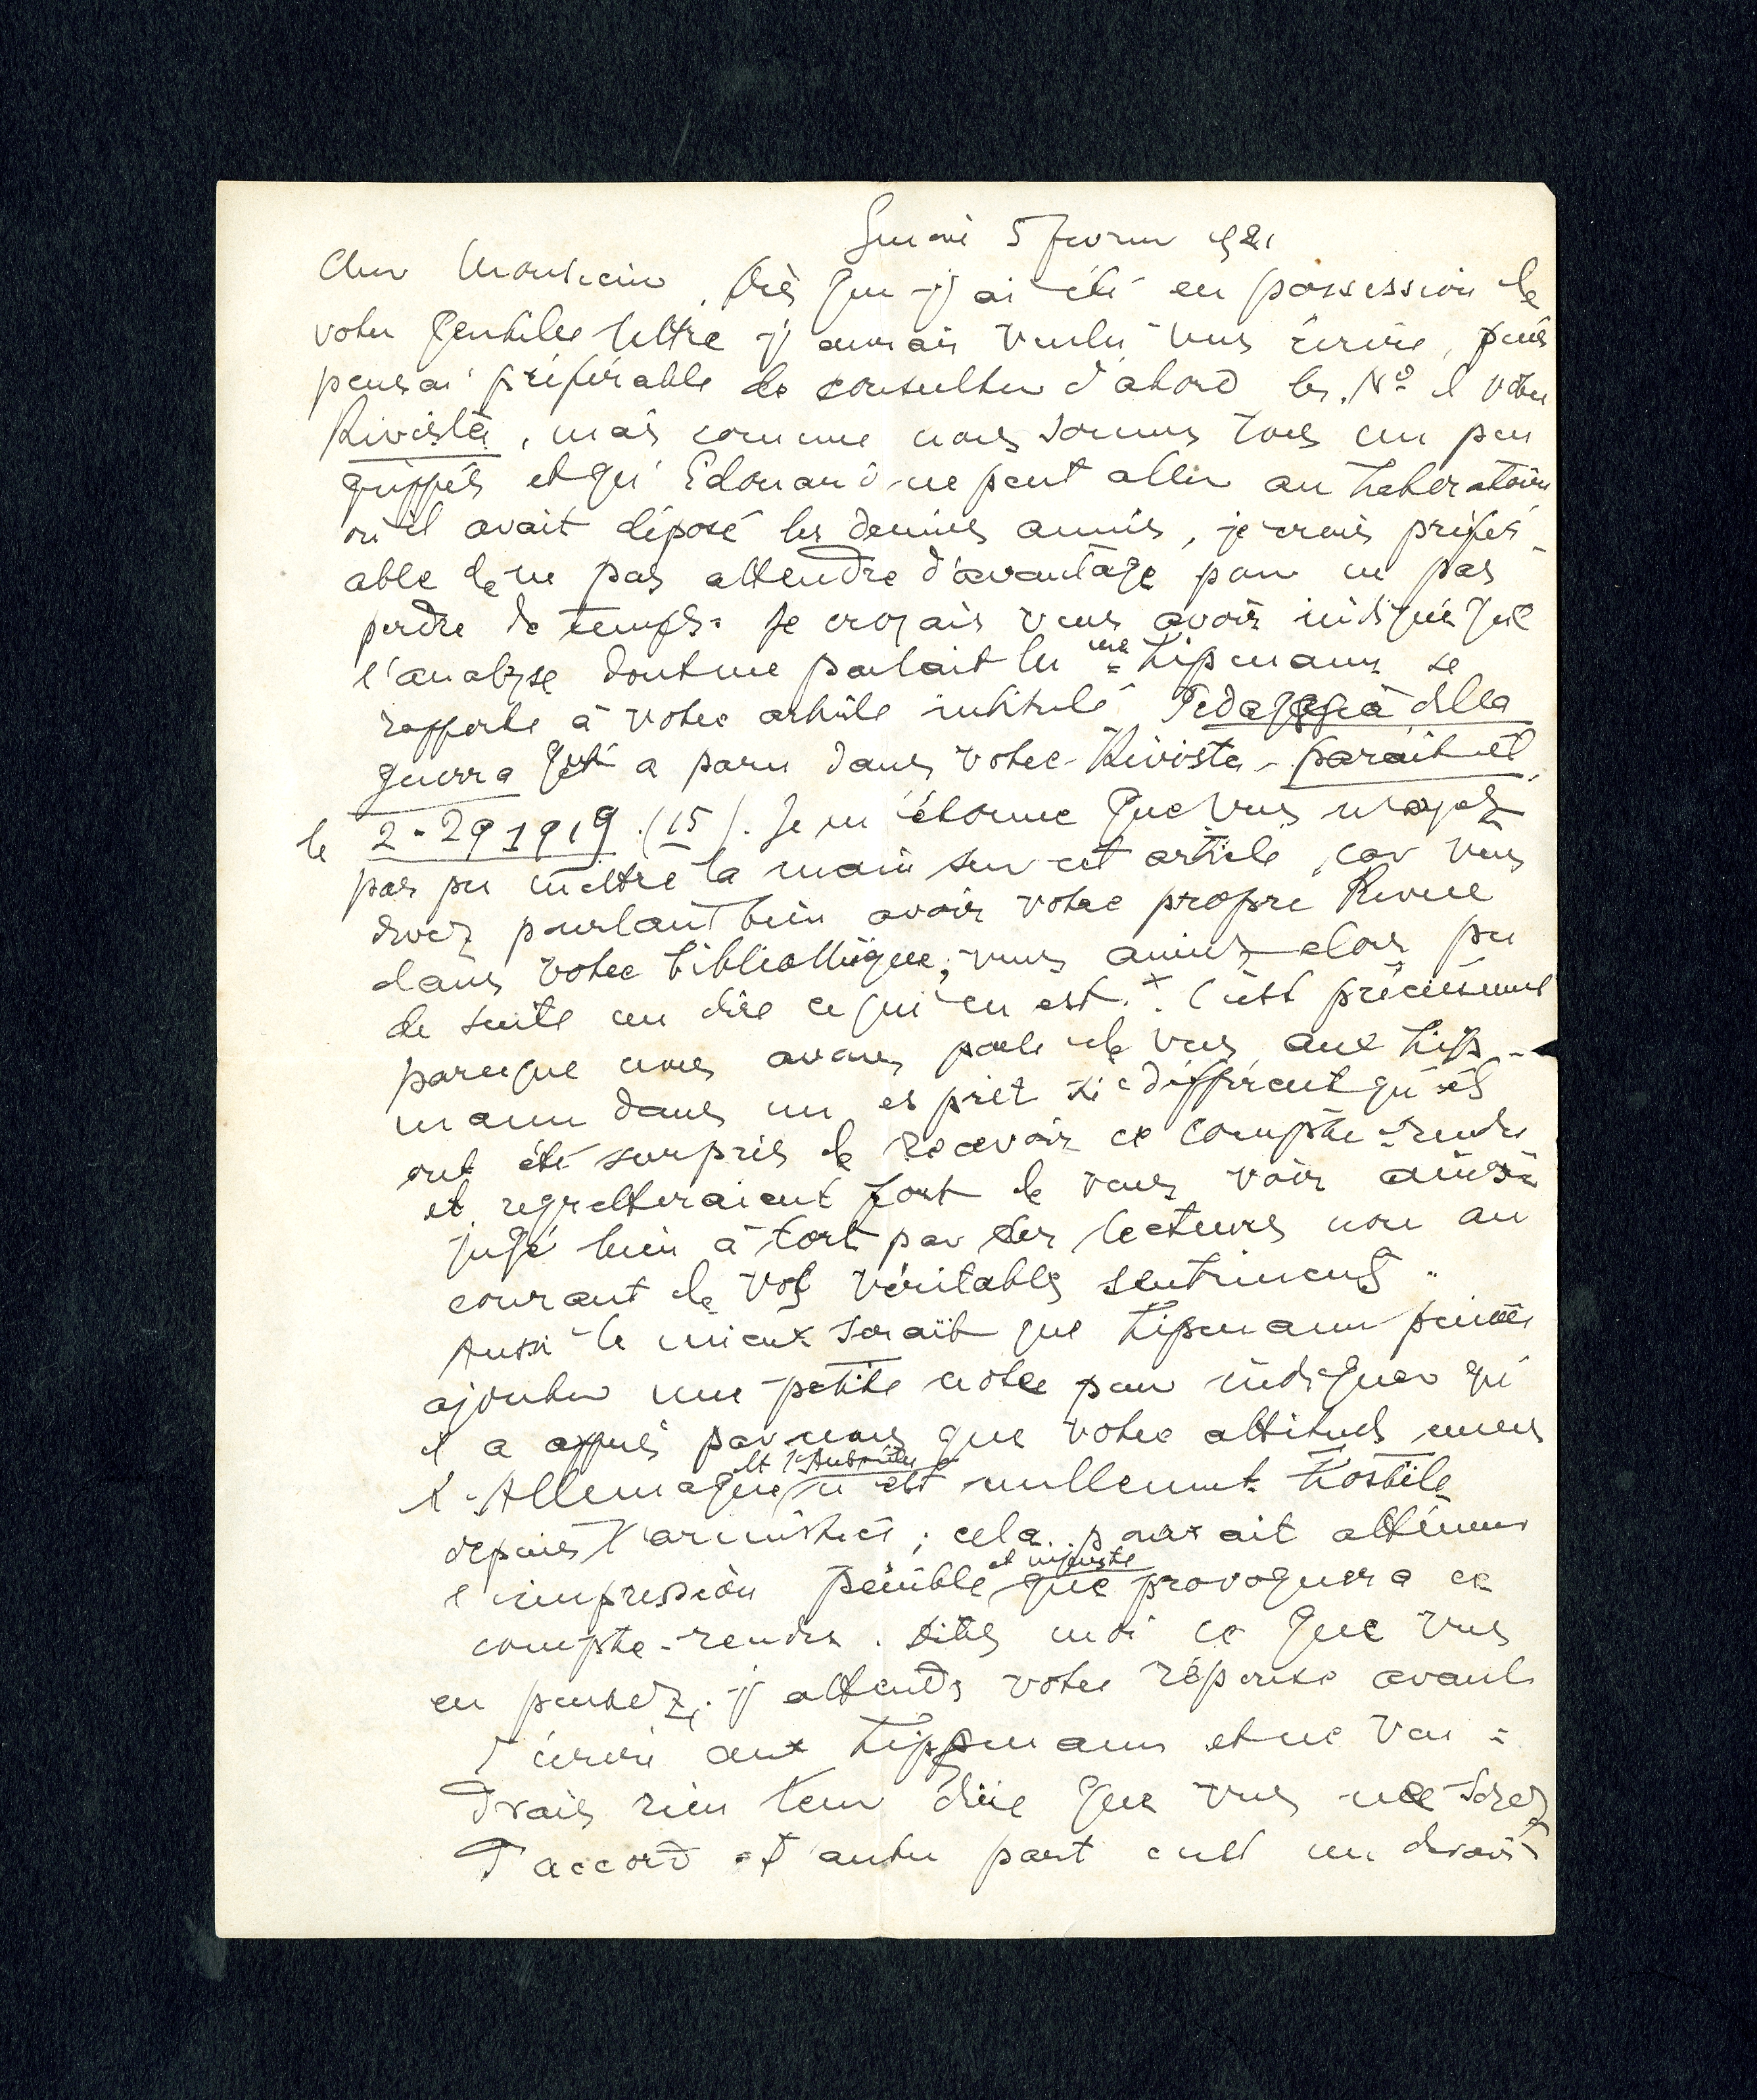 Genève 5 février 1921
Cher Monsieur, Dès que j'ai été en possession de
votre gentille lettre j'aurais voulu vous écrire, puis
pensai préférable de consulter d'abord les Nº d votre
Rivista, mais comme nous sommes tous un peu
grippés et qu'Edouard ne peut aller au Laboratoire
où il avait déposé les denies années, je crois préfér-
able de ne pas attendre d'avantage pour ne pas
perdre de temps. Je croyais vous avoir indiqué que
l'analyse dont me parlait la Lipmann se
rapporte à votre article intitulé Pedagogia della
guerra qui a paru dans votre Rivista paraît-il
le 2-29 1919 (15). Je m'étonne que vous n'ayez
pas pu mettre la main sur cet article, car vous
devez pourtant bien avoir votre propre Revue
dans votre bibliothèque; vous auriez alors pu
de suite me dire ce qui en est. + C'est précisément
parceque nous avons parlé de vous aux Lip-
mann dans un esprit si différent qu'ils
ont été surpris de recevoir ce compte-rendu
et regretteraient fort de vous voir ainsi
jugé bien à tort par des lecteurs non au
courant de vos véritables sentiments.
Aussi le mieux serait que Lipmann puisse
ajouter une petite note pour indiquer qu'
il a appris par nous que votre attitude envers
l'Allemagne et l'Autriche n'est nullement hostile
depuis l'armistice; cela pourrait atténuer
l'impression pénible et injuste que provoquera ce
compte-rendu. Dites moi ce que vous
en pensez, j'attends votre réponse avant
d'écrire aux Lippmann et ne vou-
drais rien leur dire que vous ne soyez
d'accord et d'autre part c'est un devoir